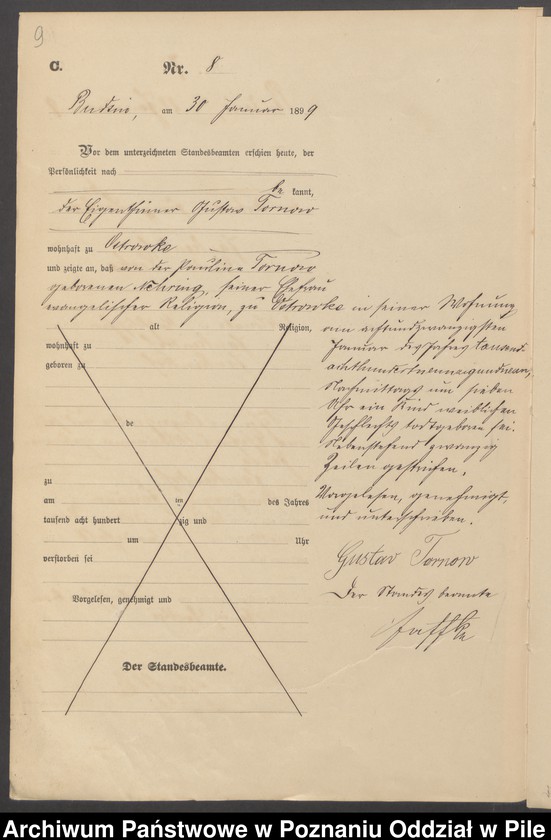 9
C.
Nr. 8
Budsin, am 30 Januar 1899
Vor dem unterzeichneten Standesbeamten erschien heute, der
Persönlichkeit nach
be kannt,
der Eigenthümer Gustav Tornow
wohnhaft zu Ostrowke
und zeigte an, daß von der Pauline Tornow
geborenen Nehring, seiner Ehefrau
evangelischer Religion, zu Ostrowke in seiner Wohnung
alt Religion,
wohnhaft zu
geboren zu
de
zu
am ten des Jahres
tausend acht hundert zig und
um Uhr
verstorben sei
Vorgelesen, genehmigt und
Der Standesbeamte.
am achtundzwanzigsten
Januar des Jahres tausend
achthundertneunzigundneun,
Nachmittags um sieben
Uhr ein Kind weiblichen
Geschlechts todtgeboren sei.
Nebenstehend zwanzig
Zeilen gestrichen.
Vorgelesen, genehmigt
und unterschrieben.
Gustav Tornow
Der Standesbeamte
Archiwum Państwowe w Poznaniu Oddział w Pile